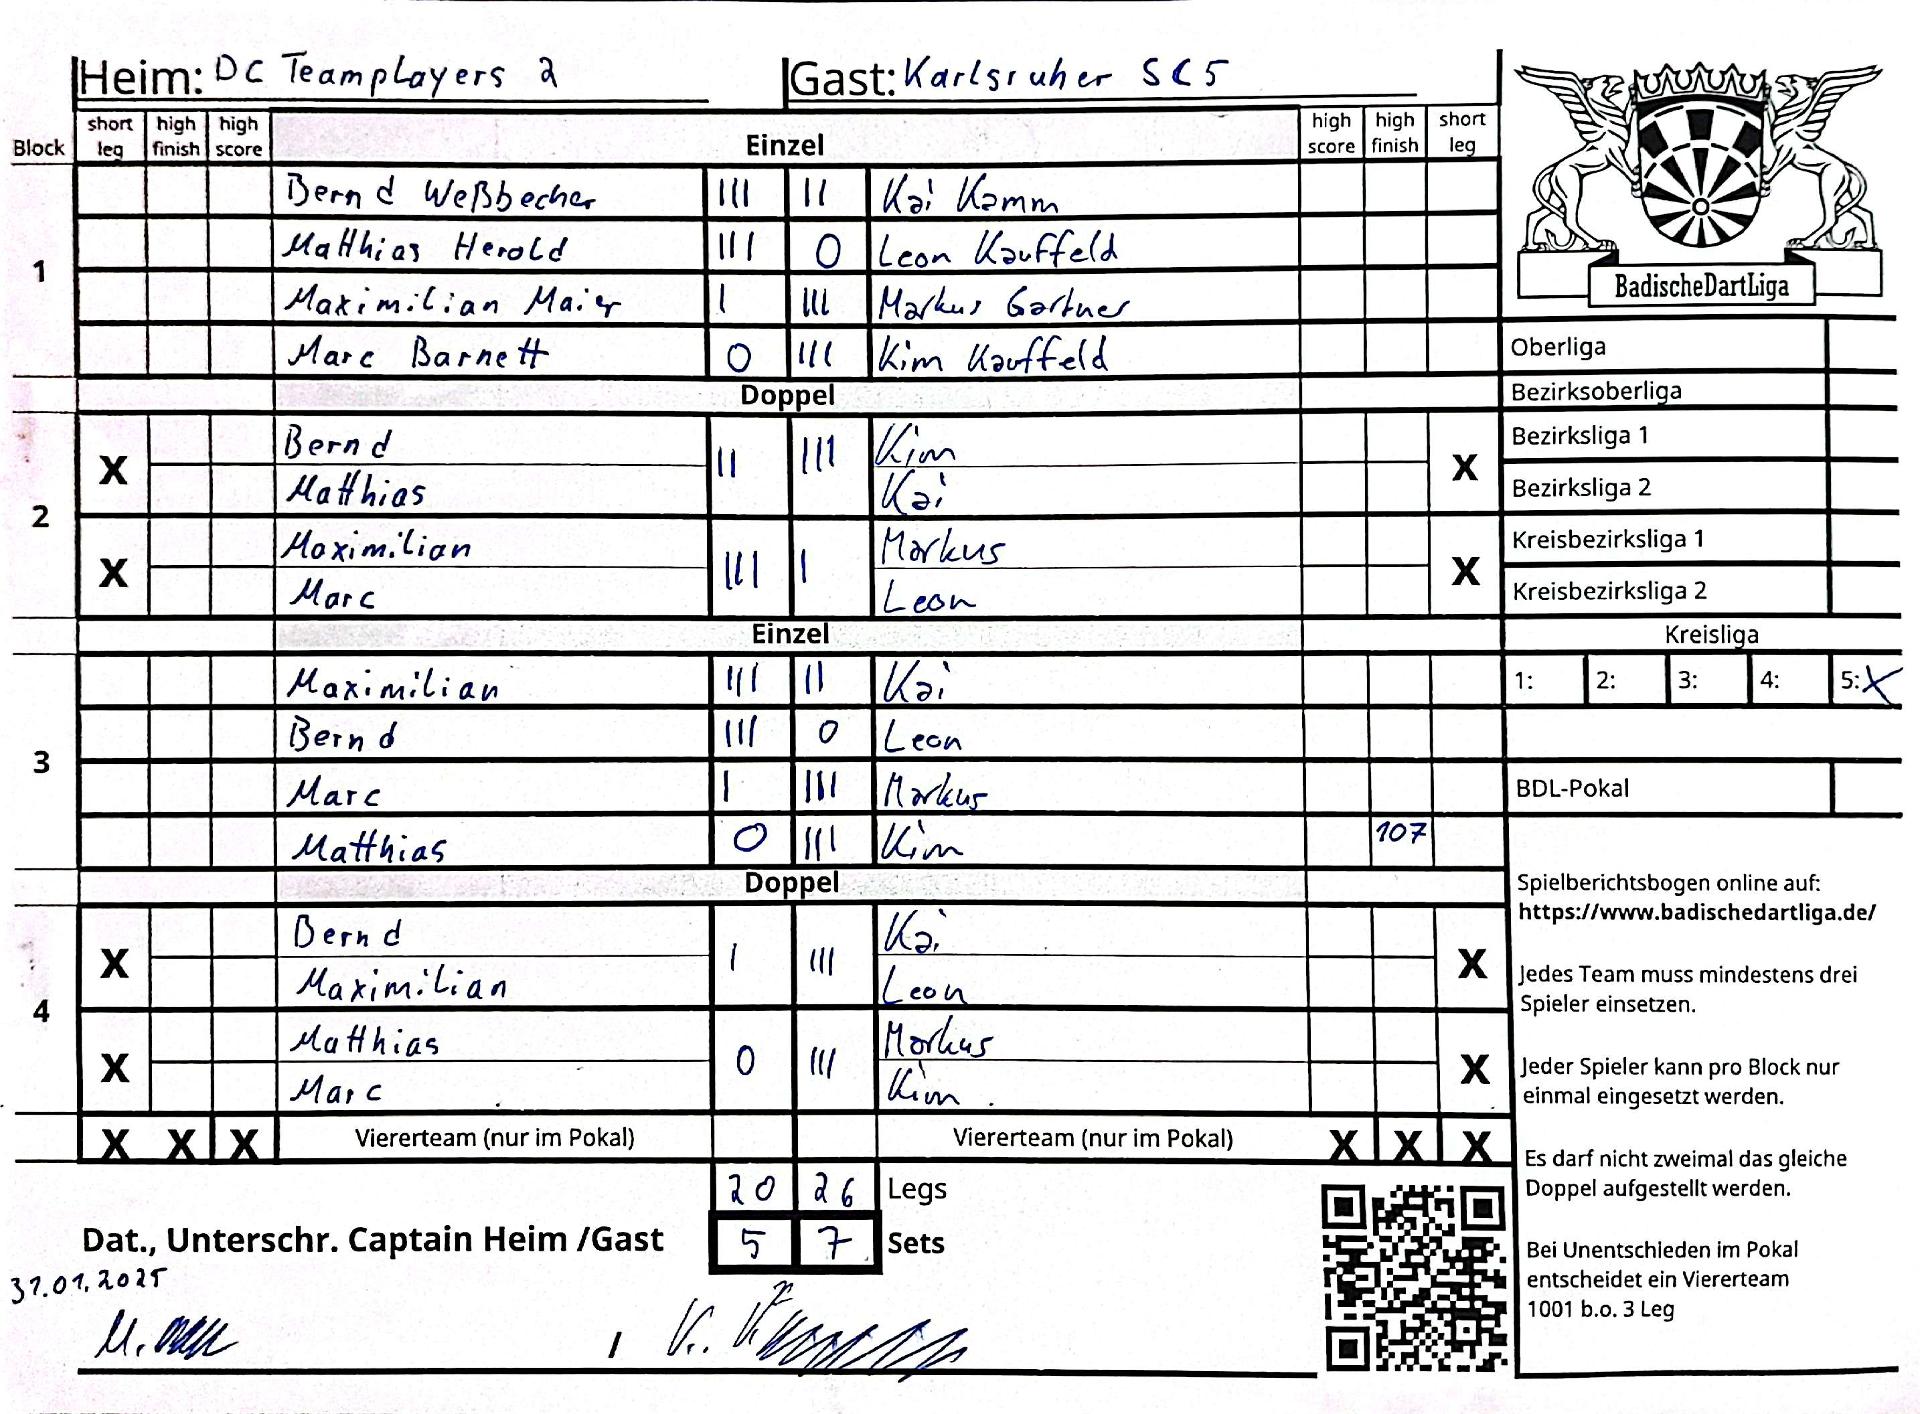 Heim: DC Teamplayers 2 Gast: Karlsruher SC 5
Block short leg high finish high score Einzel high score high finish short leg
1
Bernd Weßbecher III II Kai Kamm
Matthias Herold III 0 Leon Kauffeld
Maximilian Maier I III Markus Gartner
Marc Barnett 0 III Kim Kauffeld
Doppel
2
X Bernd II III Kim X
Matthias Kai
X Maximilian III I Markus X
Marc Leon
Einzel
3
Maximilian III II Kai
Bernd III 0 Leon
Marc I III Markus
Matthias 0 III Kim 107
Doppel
4
X Bernd I III Kai X
Maximilian Leon
X Matthias 0 III Markus X
Marc Kim
X X X Viererteam (nur im Pokal) Viererteam (nur im Pokal) X X X
20 26 Legs
Dat., Unterschr. Captain Heim /Gast 5 7 Sets
31.01.2025
M. / K.
BadischeDartLiga
Oberliga
Bezirksoberliga
Bezirksliga 1
Bezirksliga 2
Kreisbezirksliga 1
Kreisbezirksliga 2
Kreisliga
1: 2: 3: 4: 5: X
BDL-Pokal
Spielberichtsbogen online auf:
https://www.badischedartliga.de/
Jedes Team muss mindestens drei
Spieler einsetzen.
Jeder Spieler kann pro Block nur
einmal eingesetzt werden.
Es darf nicht zweimal das gleiche
Doppel aufgestellt werden.
Bei Unentschieden im Pokal
entscheidet ein Viererteam
1001 b.o. 3 Leg